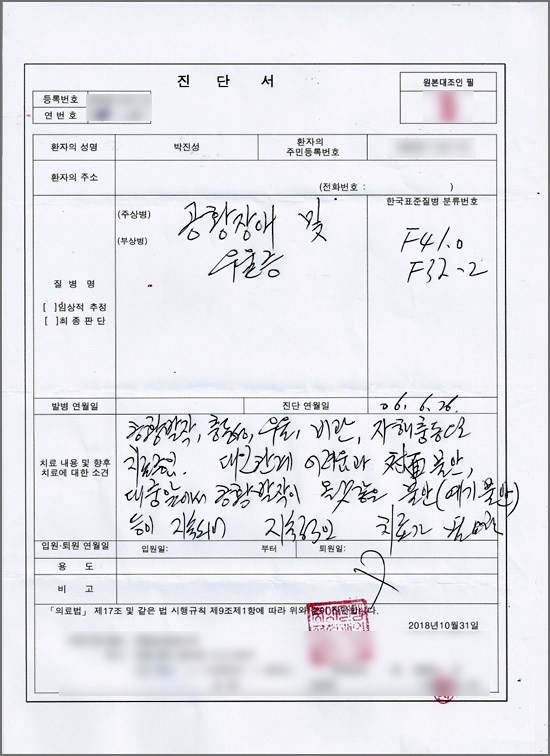 진 단 서
원본대조인 필
등록번호
연 번 호
환자의 성명 박진성 환자의 주민등록번호
환자의 주소
(전화번호 : )
질 병 명
[ ]임상적 추정
[ ]최 종 판 단
(주상병) 공황장애 및
(부상병) 우울증
한국표준질병 분류번호
F41.0
F32-2
발병 연월일 진단 연월일 06. 6. 26.
치료 내용 및 향후
치료에 대한 소견
공황발작, 충동성, 우울, 비관, 자해충동으로
치료중임. 대인관계 어려움과 불안,
대중앞에서 공황발작이 불안(예기불안)
등이 지속되어 지속적인 치료가 필요함
입원·퇴원 연월일 입원일: 부터 퇴원일:
용 도
비 고
「의료법」 제17조 및 같은 법 시행규칙 제9조제1항에 따라 위와 같이 진단합니다.
2018년10월31일